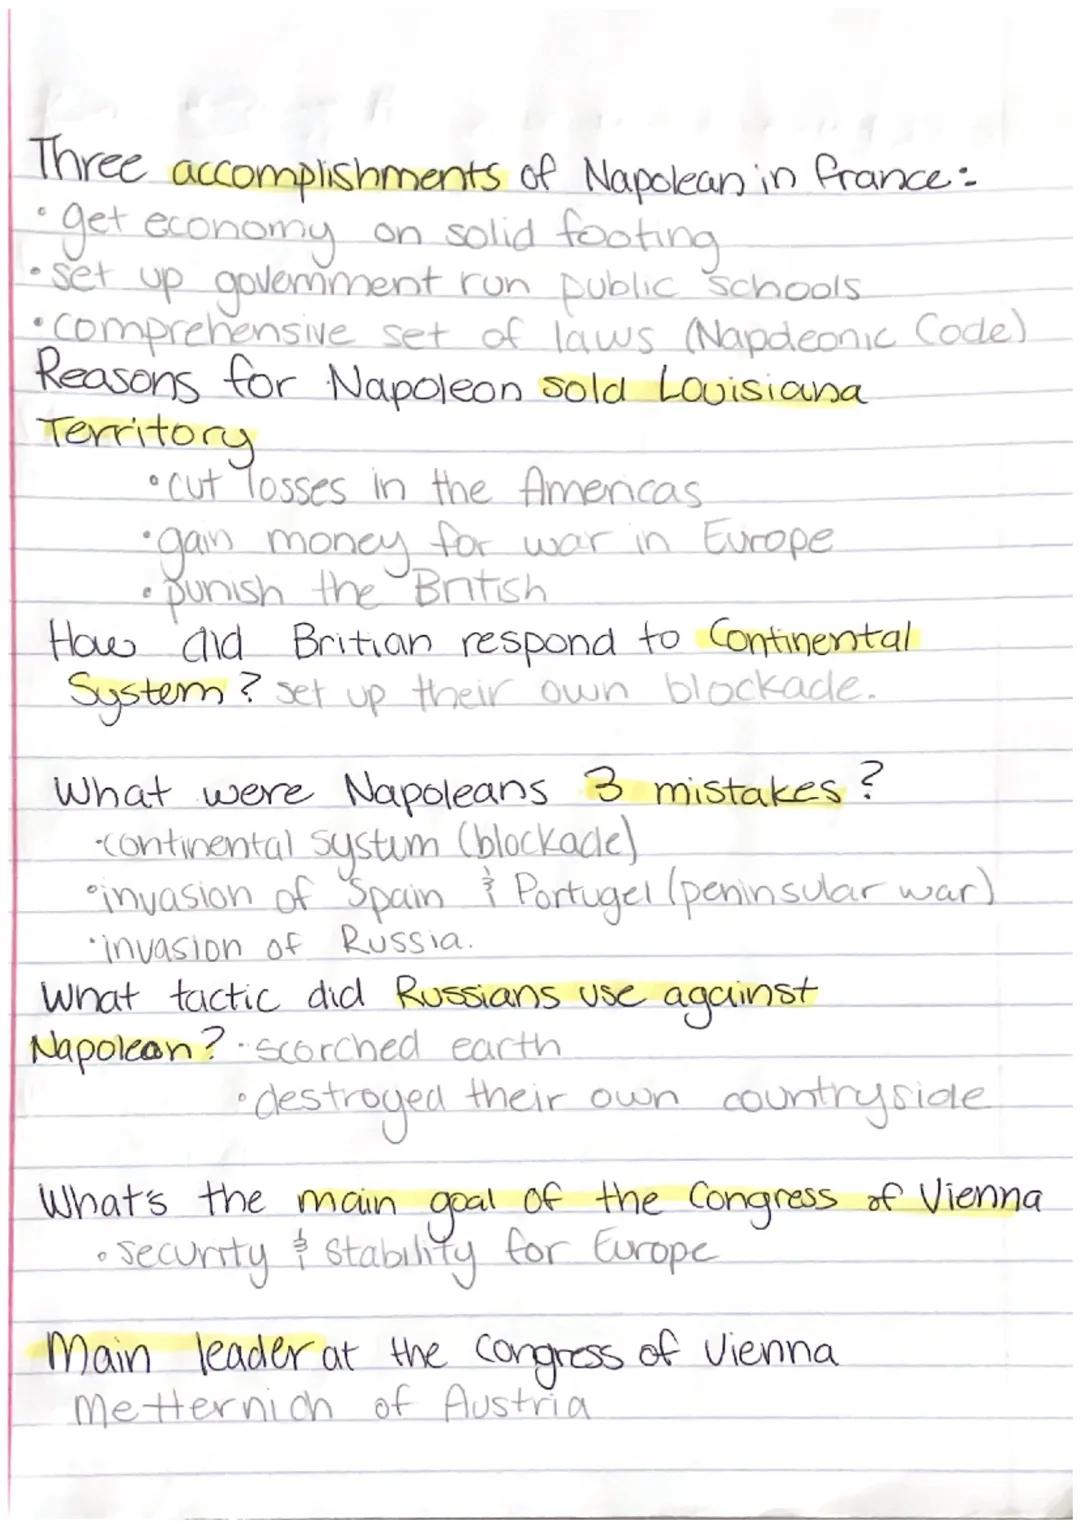 Three accomplishments of Napolean in france:
• get economy on solid footing
• set up government run public schools
• comprehensive set of laws (Napoleonic Code)
Reasons for Napoleon sold Louisiana
Territory
• cut losses in the Americas
• gain money for war in Europe
• punish the British
How did Britian respond to Continental
System? set up their own blockade.
What were Napoleans 3 mistakes?
• continental system (blockade)
• invasion of Spain & Portugel (peninsular war)
• invasion of Russia.
What tactic did Russians use against
Napolean? • scorched earth
• destroyed their own countryside
What's the main goal of the Congress of Vienna
• security & stability for Europe
Main leader at the congress of Vienna
Metternich of Austria